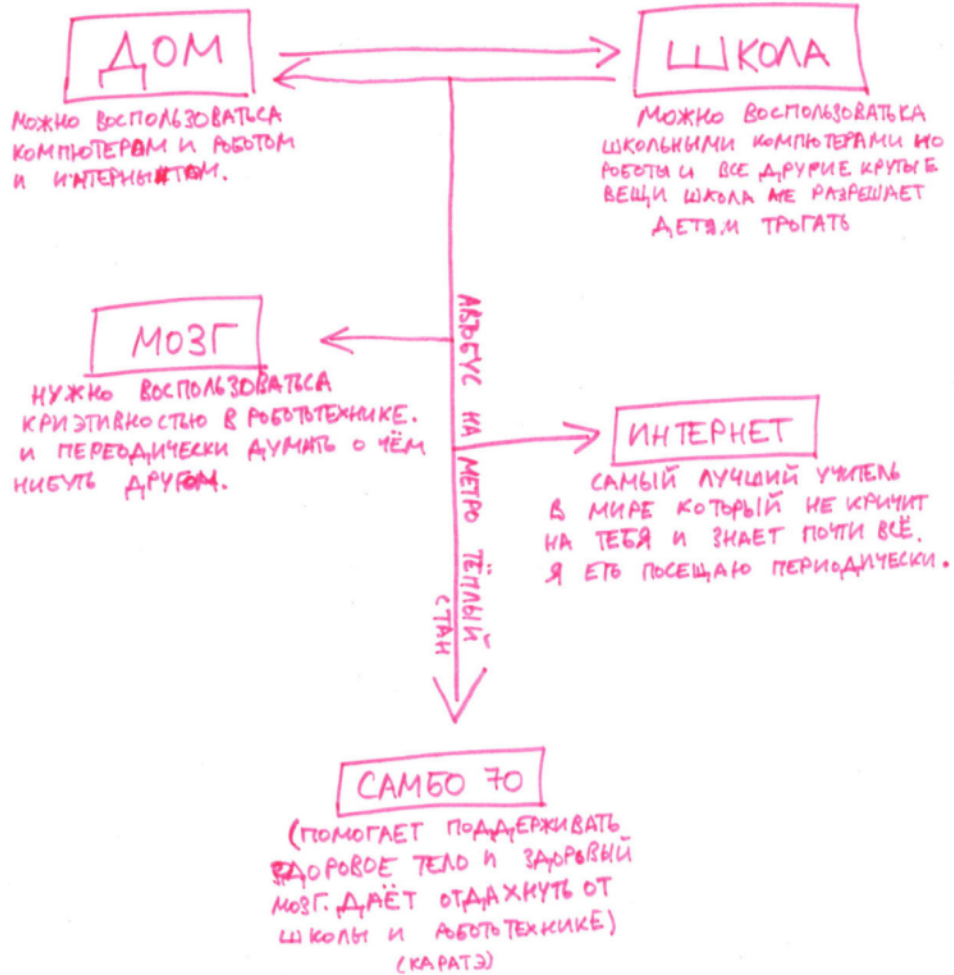 ДОМ
МОЖНО ВОСПОЛЬЗОВАТЬСА
КОМПЮТЕРАМ И РОБОТОМ
И ИНТЕРНЫТОМ.
ШКОЛА
МОЖНО ВОСПОЛЬЗОВАТЬКА
ШКОЛЬНЫМИ КОМПЮТЕРАМИ НО
РОБОТЫ И ВСЕ ДРУГИЕ КРУТЫЕ
ВЕЩИ ШКОЛА НЕ РАЗРЕШАЕТ
ДЕТЯМ ТРОГАТЬ
АВТОБУС НА МЕТРО ТЁПЛЫЙ
СТАН
МОЗГ
НУЖНО ВОСПОЛЬЗОВАТЬСА
КРИЭТИВНОСТЬЮ В РОБОТОТЕХНИКЕ.
И ПЕРЕОДИЧЕСКИ ДУМАТЬ О ЧЁМ
НИБУТЬ ДРУГОМ.
ИНТЕРНЕТ
САМЫЙ ЛУЧШИЙ УЧИТЕЛЬ
В МИРЕ КОТОРЫЙ НЕ КРИЧИТ
НА ТЕБЯ И ЗНАЕТ ПОЧТИ ВСЁ.
Я ЕГО ПОСЕЩАЮ ПЕРИОДИЧЕСКИ.
САМБО 70
(ПОМОГАЕТ ПОДДЕРЖИВАТЬ
ЗДОРОВОЕ ТЕЛО И ЗДОРОВЫЙ
МОЗГ. ДАЁТ ОТДАХНУТЬ ОТ
ШКОЛЫ И РОБОТОТЕХНИКЕ)
(КАРАТЭ)